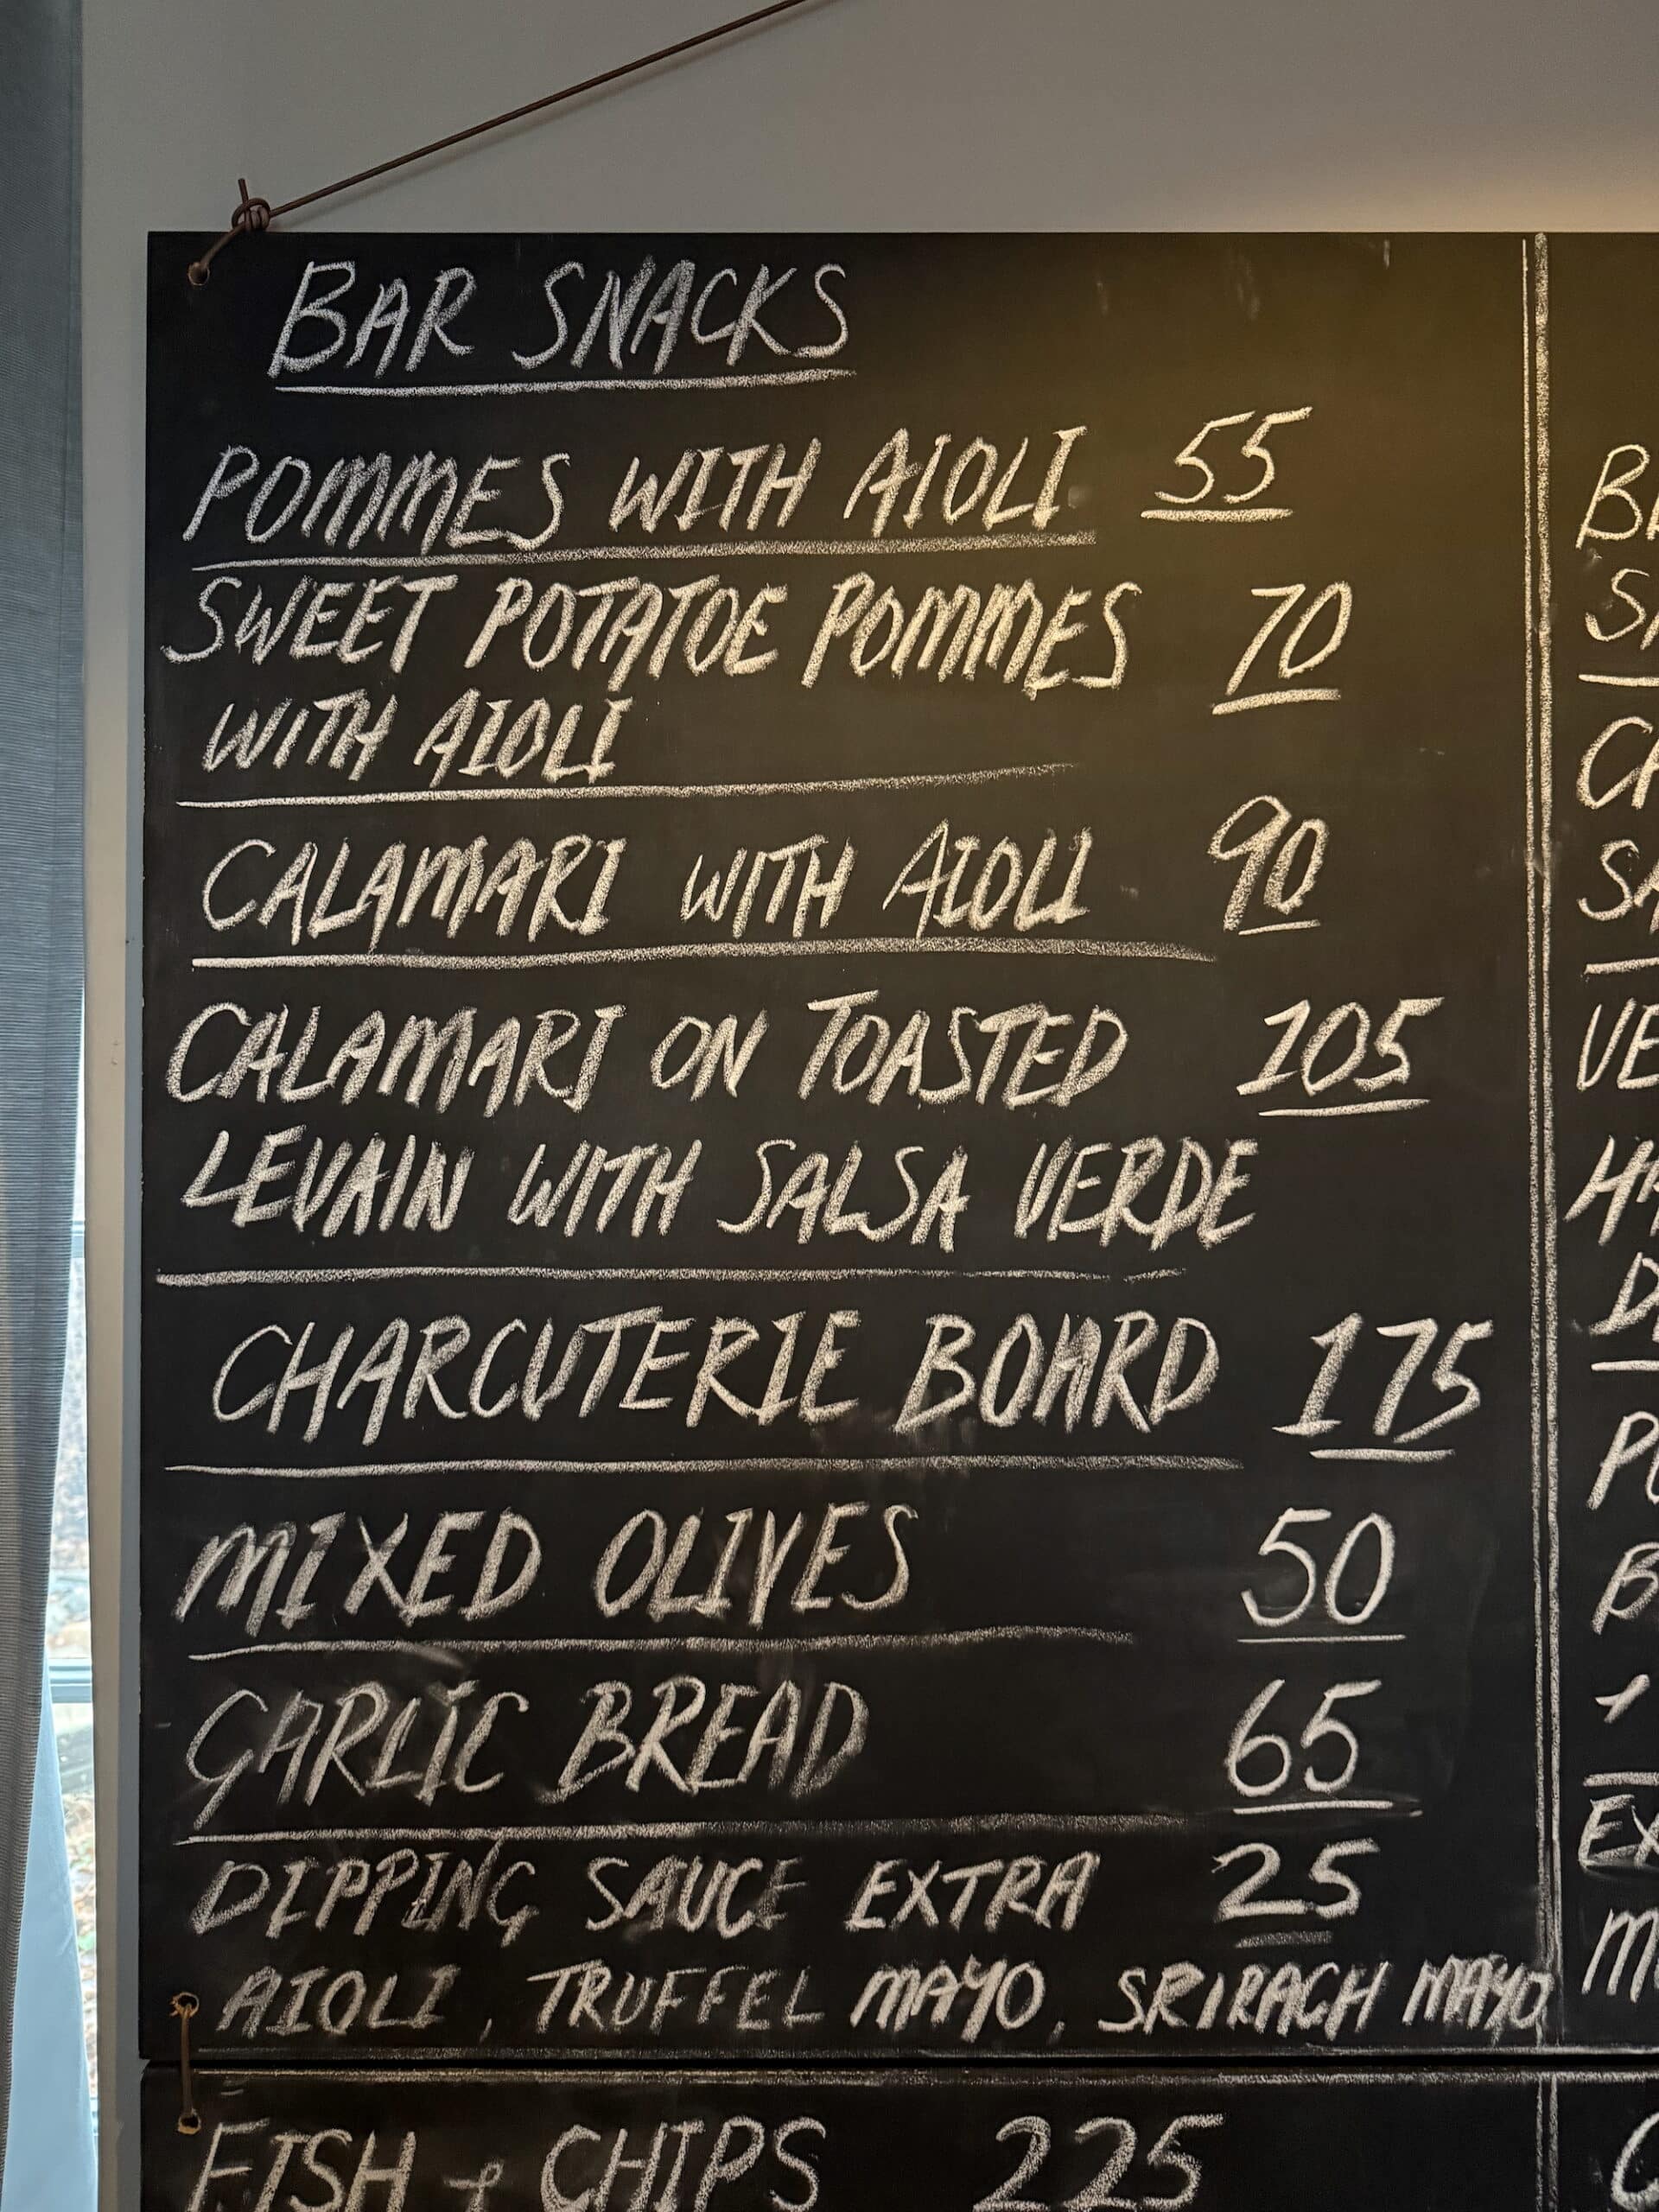 BAR SNACKS
POMMES WITH AIOLI 55
SWEET POTATOE POMMES 70
WITH AIOLI
CALAMARI WITH AIOLI 90
CALAMARI ON TOASTED 105
LEVAIN WITH SALSA VERDE
CHARCUTERIE BOARD 175
MIXED OLIVES 50
GARLIC BREAD 65
DIPPING SAUCE EXTRA 25
AIOLI, TRUFFEL MAYO, SRIRACH MAYO
FISH + CHIPS 225